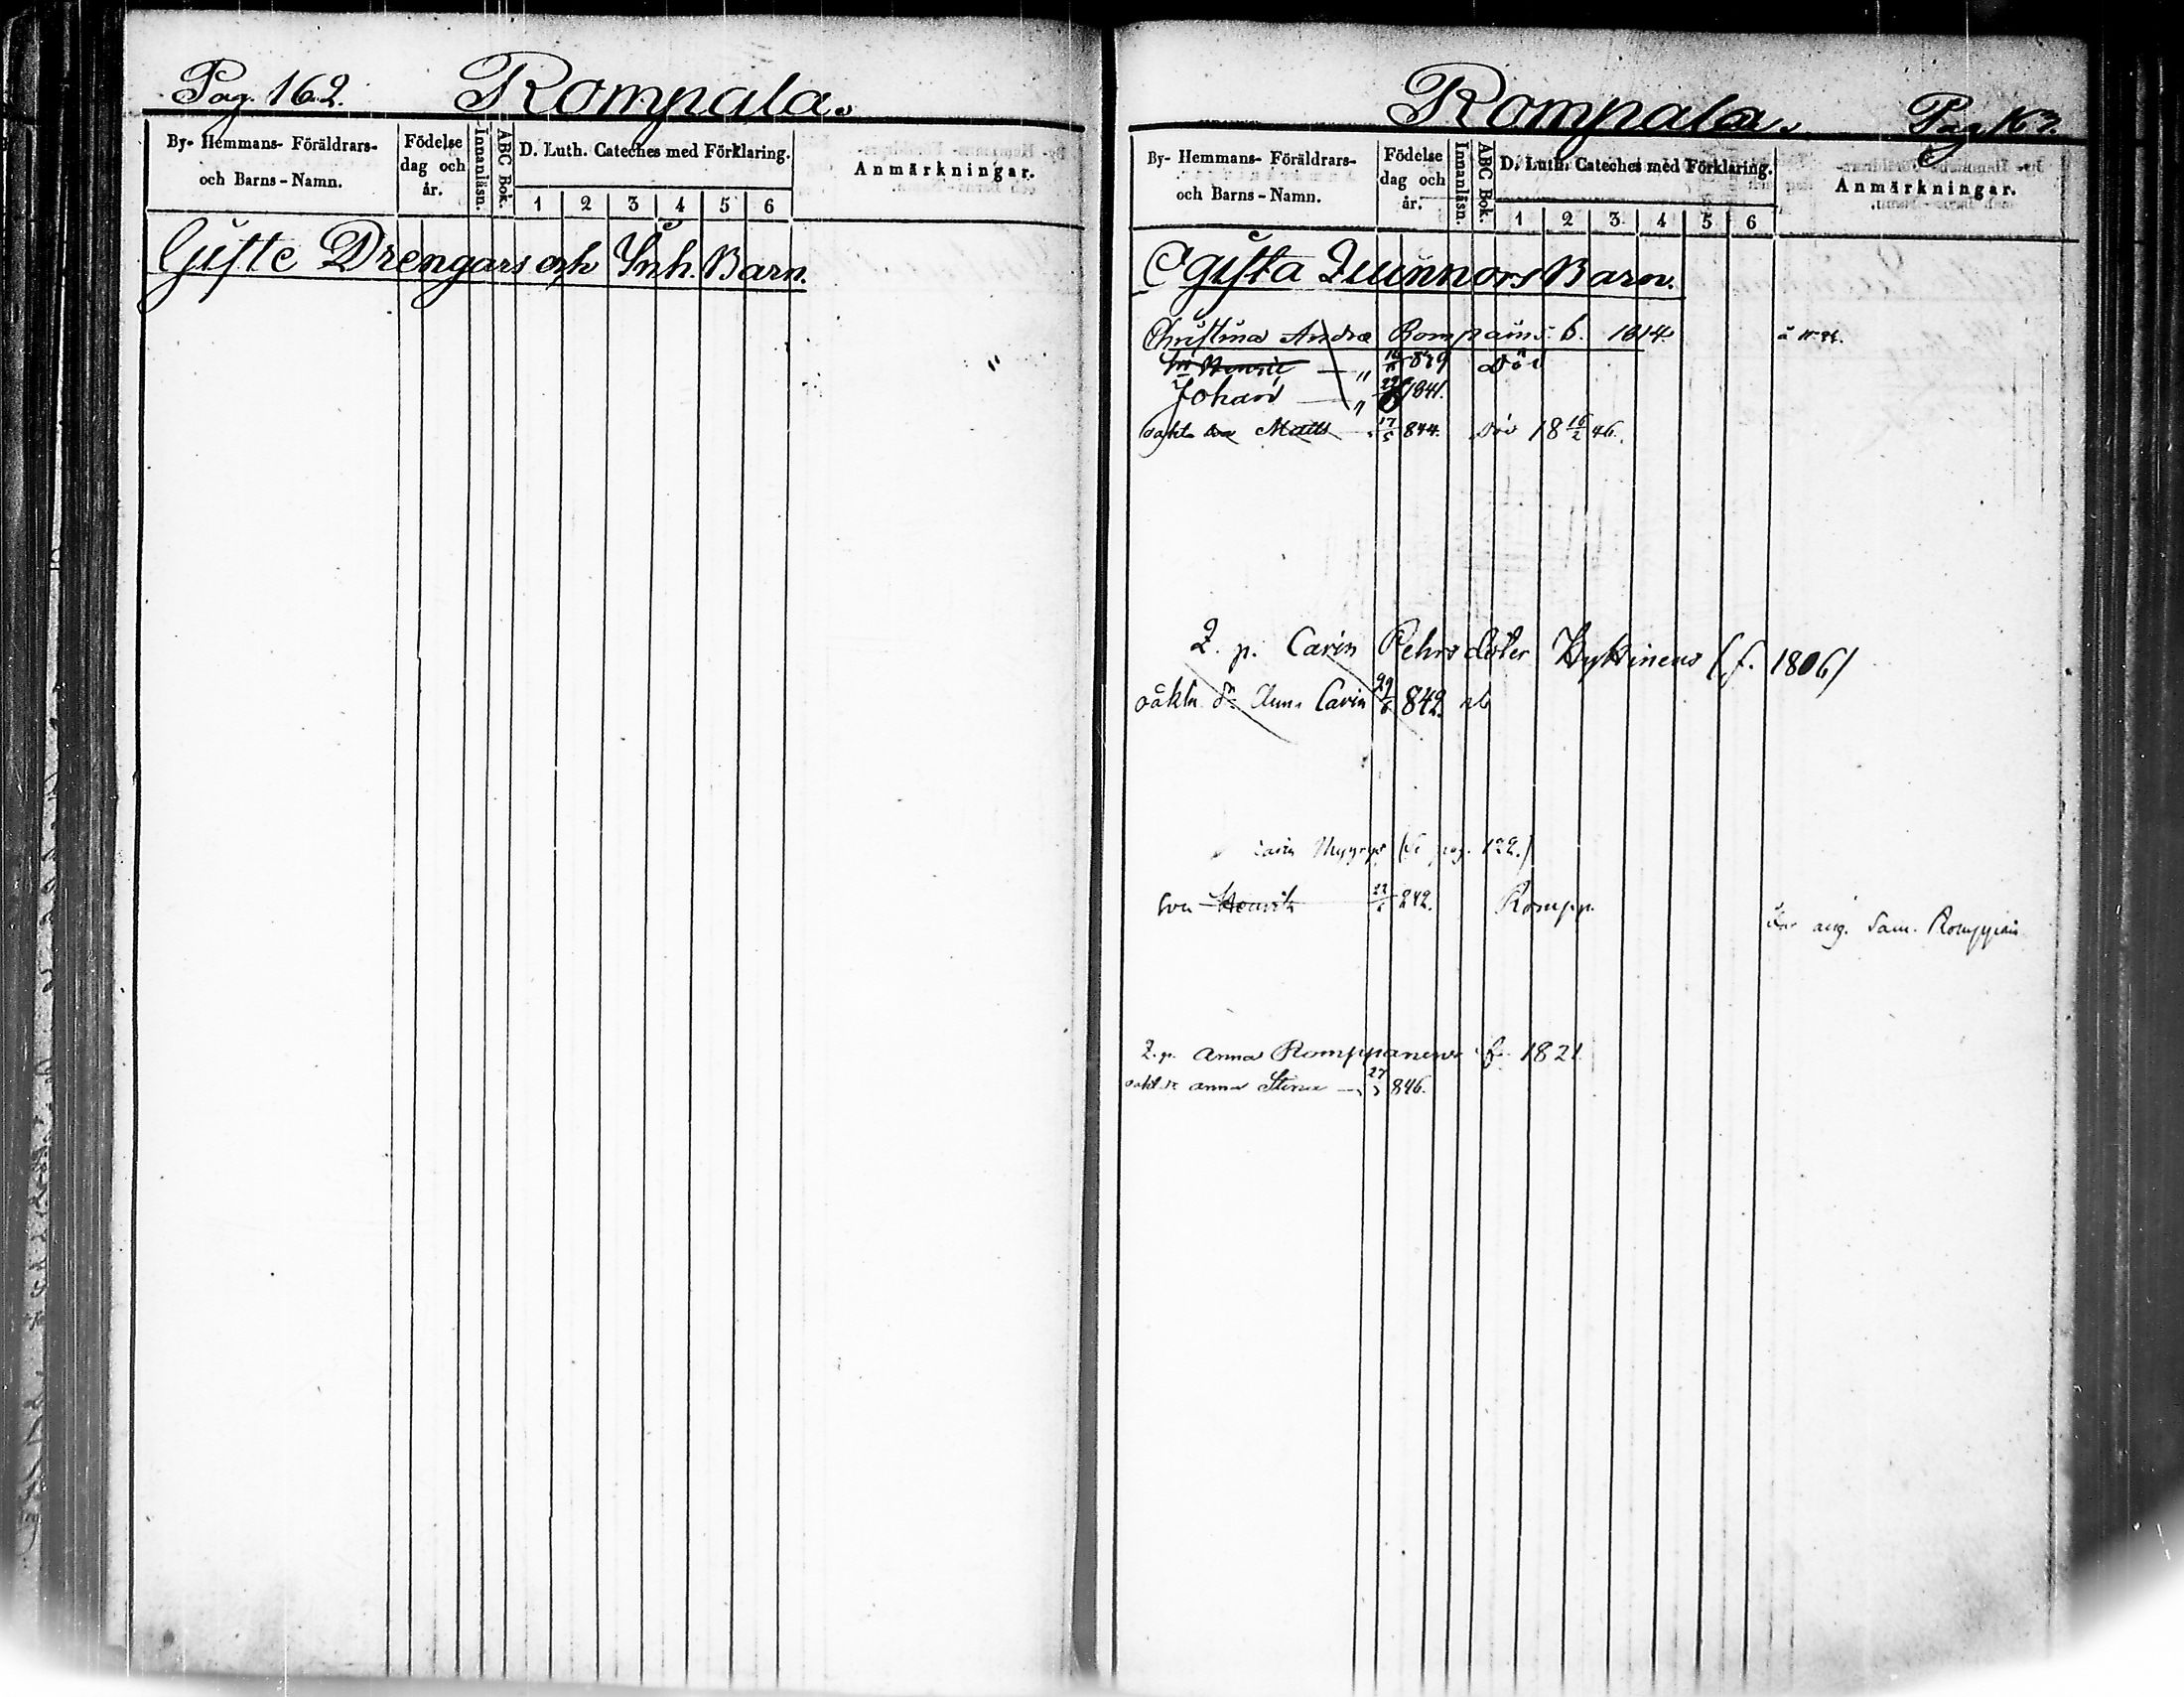 Pag. 162. Rompala.
By- Hemmans- Föräldrars-
och Barns-Namn.
Födelse
dag och
år.
Innanläsn.
ABC Bok.
D. Luth. Cateches med Förklaring.
1 2 3 4 5 6
Anmärkningar.
Gifte Drengars och Inh. Barn.
Rompala. Pag 163.
By- Hemmans- Föräldrars-
och Barns-Namn.
Födelse
dag och
år.
Innanläsn.
ABC Bok.
D. Luth. Cateches med Förklaring.
1 2 3 4 5 6
Anmärkningar.
Ogifta Quinnors Barn.
Christina Andrae 1814.
839 Död
Johan 1841.
oäkta Matts 17/5 844. Död 18 16/2 46.
Q. p. Carin Pehrsdoter (f. 1806)
oäkta Anna Carin 29/6 842.
Carin (Se pag. 122.)
Son Henrik 22/6 842. Rompp.
ang. Sam.
Q. p. Anna Romppanens f. 1821
Anna Stina 27/3 846.